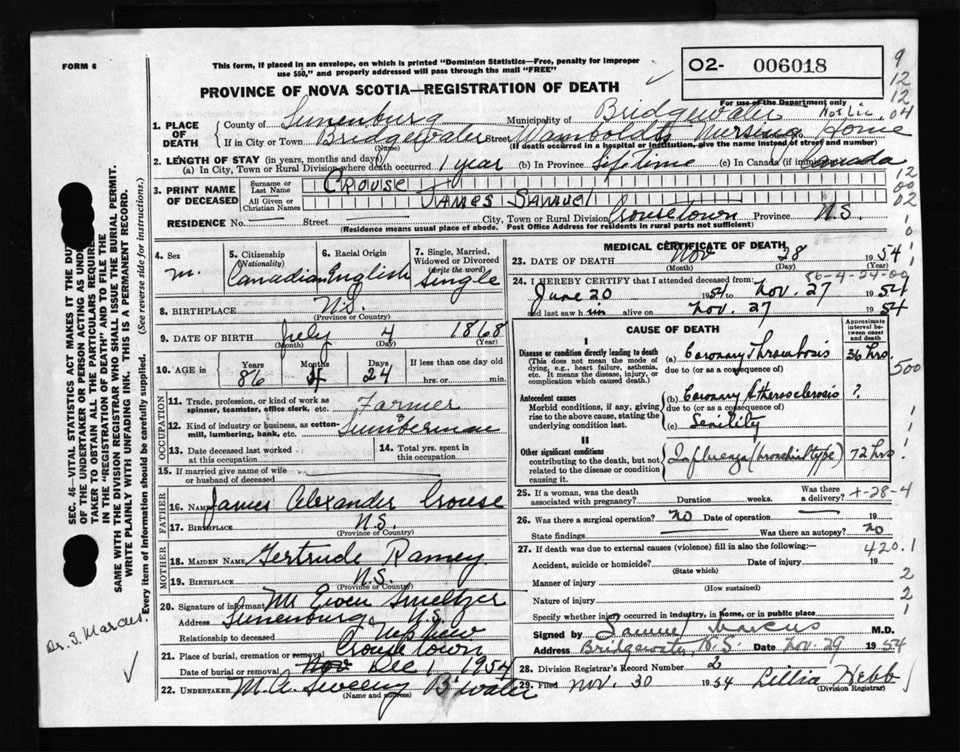 FORM 6
This form, if placed in an envelope, on which is printed "Dominion Statistics—Free, penalty for improper
use $50," and properly addressed will pass through the mail "FREE"
02- 006018
PROVINCE OF NOVA SCOTIA—REGISTRATION OF DEATH
For use of the Department only
1. PLACE OF DEATH
County of Lunenburg Municipality of Bridgewater
If in City or Town Bridgewater Street Wamboldts Nursing Home
(Name) (If death occurred in a hospital or institution, give the name instead of street and number)
2. LENGTH OF STAY (in years, months and days)
(a) In City, Town or Rural Division where death occurred 1 year (b) In Province Lifetime (c) In Canada (if immigrant) Canada
3. PRINT NAME OF DECEASED
Surname or Last Name CROUSE
All Given or Christian Names JAMES SAMUEL
RESIDENCE No. Street City, Town or Rural Division Crousetown Province N.S.
(Residence means usual place of abode. Post Office Address for residents in rural parts not sufficient)
4. Sex m.
5. Citizenship (Nationality) Canadian
6. Racial Origin English
7. Single, Married, Widowed or Divorced (write the word) Single
8. BIRTHPLACE N.S.
(Province or Country)
9. DATE OF BIRTH July 4 1868
(Month) (Day) (Year)
10. AGE in Years 86 Months 4 Days 24 If less than one day old
hrs. or min.
OCCUPATION
11. Trade, profession, or kind of work as spinner, teamster, office clerk, etc. Farmer
12. Kind of industry or business, as cotton-mill, lumbering, bank, etc. Lumberman
13. Date deceased last worked at this occupation
14. Total yrs. spent in this occupation
15. If married give name of wife or husband of deceased
FATHER
16. NAME James Alexander Crouse
17. BIRTHPLACE N.S.
(Province or Country)
MOTHER
18. MAIDEN NAME Gertrude Ramey
19. BIRTHPLACE N.S.
(Province or Country)
20. Signature of informant Mr Owen Smeltzer
Address Lunenburg N.S.
Relationship to deceased Nephew
21. Place of burial, cremation or removal Crousetown
Date of burial or removal Nov Dec 1 1954
22. UNDERTAKER M.A. Sweeny B'water
(Name and address)
MEDICAL CERTIFICATE OF DEATH
23. DATE OF DEATH Nov 28 1954
(Month) (Day) (Year)
86-4-24-00
24. I HEREBY CERTIFY that I attended deceased from:
June 20 1954 to Nov. 27 1954
and last saw him alive on Nov. 27 1954
CAUSE OF DEATH
Approximate interval between onset and death
I
Disease or condition directly leading to death
(This does not mean the mode of dying, e.g., heart failure, asthenia, etc. It means the disease, injury, or complication which caused death.)
(a) Coronary Thrombosis 36 hrs.
due to (or as a consequence of)
Antecedent causes
Morbid conditions, if any, giving rise to the above cause, stating the underlying condition last.
(b) Coronary Atherosclerosis ?
due to (or as a consequence of)
(c) Senility
II
Other significant conditions
contributing to the death, but not related to the disease or condition causing it.
Influenza (bronchial type) 72 hrs
500
25. If a woman, was the death associated with pregnancy? Duration weeks. Was there a delivery?
26. Was there a surgical operation? no Date of operation 19
State findings Was there an autopsy? no
27. If death was due to external causes (violence) fill in also the following:—
420.1
Accident, suicide or homicide? Date of injury 19
(State which)
Manner of injury
(How sustained)
Nature of injury
Specify whether injury occurred in industry, in home, or in public place
Signed by Samuel Marcus M.D.
Address Bridgewater, N.S. Date Nov. 29 1954
28. Division Registrar's Record Number 2
29. Filed Nov. 30 1954 Lillia Hebb
(Division Registrar)
SEC. 46—VITAL STATISTICS ACT MAKES IT THE
OF THE UNDERTAKER OR PERSON ACTING AS
TAKER TO OBTAIN ALL THE PARTICULARS
IN THE "REGISTRATION OF DEATH" AND TO FILE THE
SAME WITH THE DIVISION REGISTRAR WHO SHALL ISSUE THE BURIAL PERMIT.
WRITE PLAINLY WITH UNFADING INK. THIS IS A PERMANENT RECORD.
Every item of information should be carefully supplied. (See reverse side for instructions.)
Dr. S. Marcus